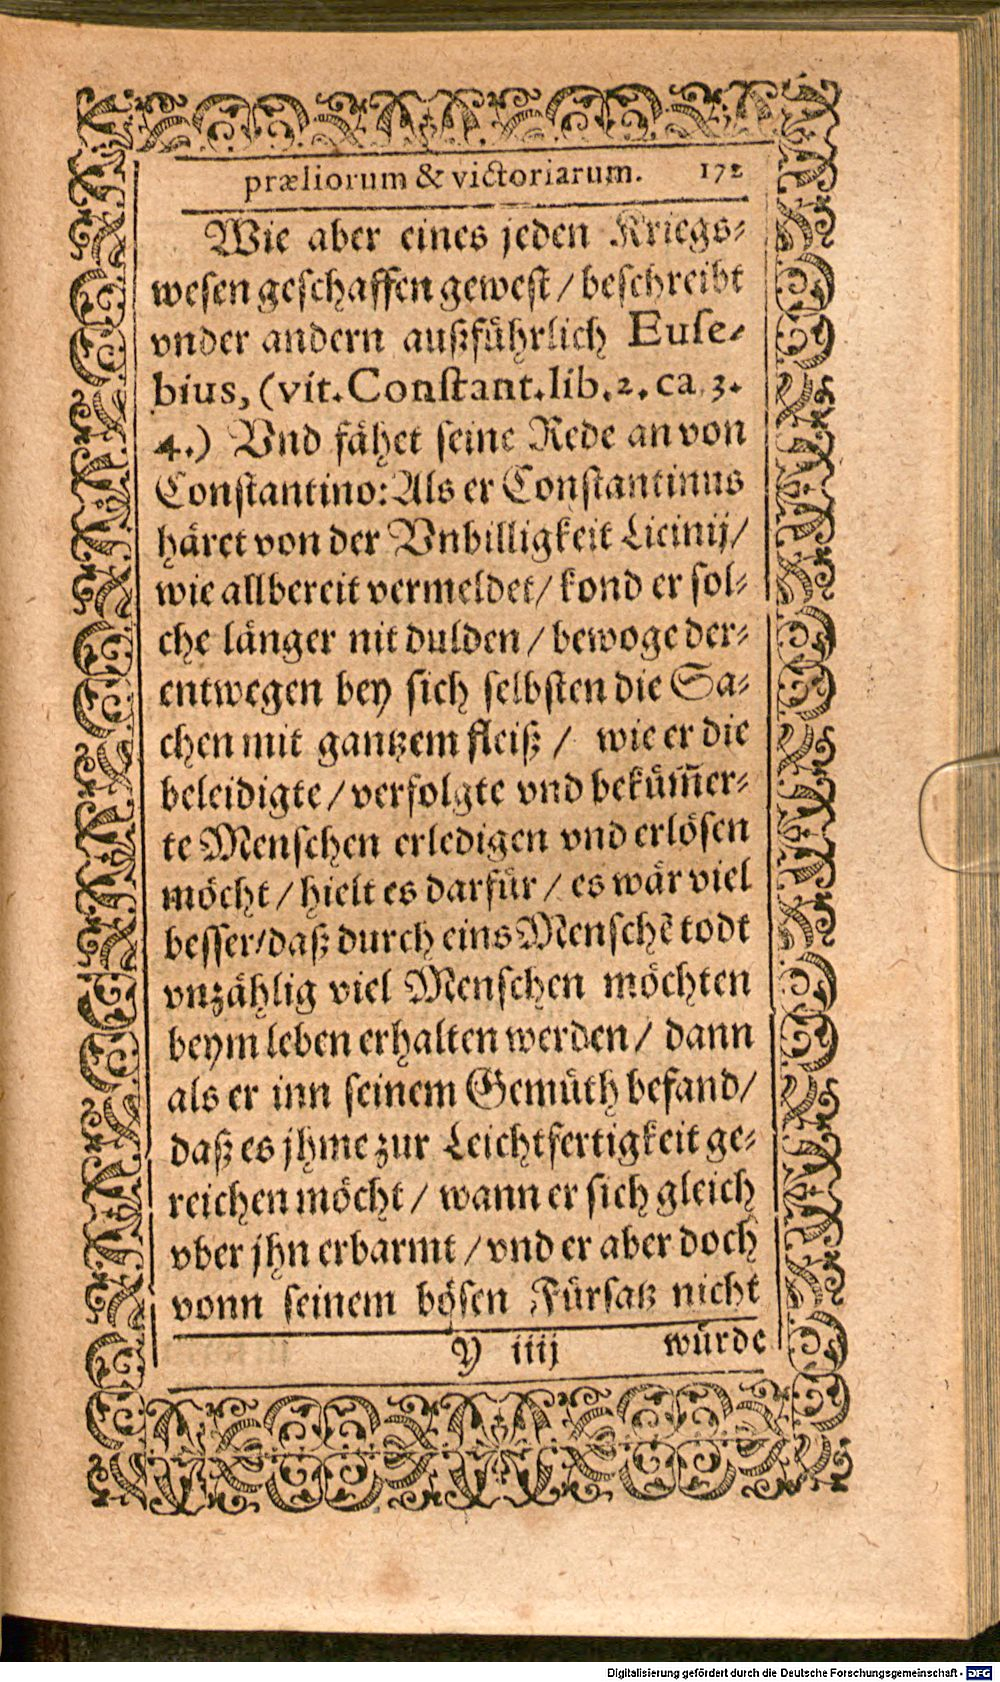 præliorum & victoriarum. 172
Wie aber eines jeden Kriegs-
wesen geschaffen gewest / beschreibt
vnder andern außführlich Euse-
bius, (vit. Constant. lib. 2. ca. 3.
4.) Vnd fähet seine Rede an von
Constantino: Als er Constantinus
häret von der Vnbilligkeit Licinij /
wie allbereit vermeldet / kond er sol-
che länger nit dulden / bewoge der-
entwegen bey sich selbsten die Sa-
chen mit gantzem fleiß / wie er die
beleidigte / verfolgte vnd beküm̃er-
te Menschen erledigen vnd erlösen
möcht / hielt es darfür / es wär viel
besser / daß durch eins Menschẽ todt
vnzählig viel Menschen möchten
beym leben erhalten werden / dann
als er inn seinem Gemüth befand /
daß es jhme zur Leichtfertigkeit ge-
reichen möcht / wann er sich gleich
vber jhn erbarmt / vnd er aber doch
vonn seinem bösen Fürsatz nicht
Y iiij würde
Digitalisierung gefördert durch die Deutsche Forschungsgemeinschaft - DFG